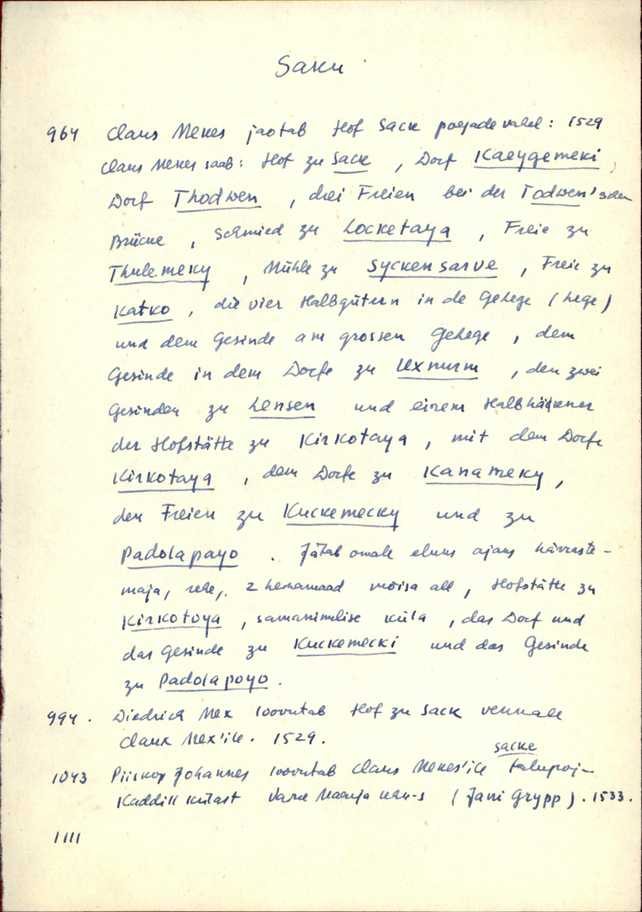 Saku
964 Claus Mekes jaotab Hof Sack poegade vahel: 1529
Claus Mekes saab: Hof zu Sack, Dorf Kaeygemeki,
Dorf Thodwen, drei Freien bei der Todwen'schen
Brücke, Schmied zu Locketaya, Freie zu
Thulemeky, Mühle zu Syckensarve, Freie zu
Katko, die vier Halbgütern in de Gehege (hege)
und dem Gesinde am grossen Gehege, dem
Gesinde in dem Dorfe zu Uxnurm, den zwei
Gesinden zu Lensen und einem Halbhäkener
der Hofstätte zu Kirkotaya, mit dem Dorfe
Kirkotaya, dem Dorfe zu Kanameky,
den Freien zu Kuckemecky und zu
Padolapayo. Jätab omale eluus ajaks härraste-
maja, rehe, 2 heinamaad mõisa all, Hofstätte zu
Kirkotoya, samanimelise küla, das Dorf und
das Gesinde zu Kuckemecki und das Gesinde
zu Padolapoyo.
994. Diedrich Mex loovutab Hof zu Sack vennale
Claus Mex'ile. 1529.
1043 Piiskop Johannes loovutab Claus Mekes'ile sacke talupoja
Kaddill külast (Jani Grypp). 1533.
1111